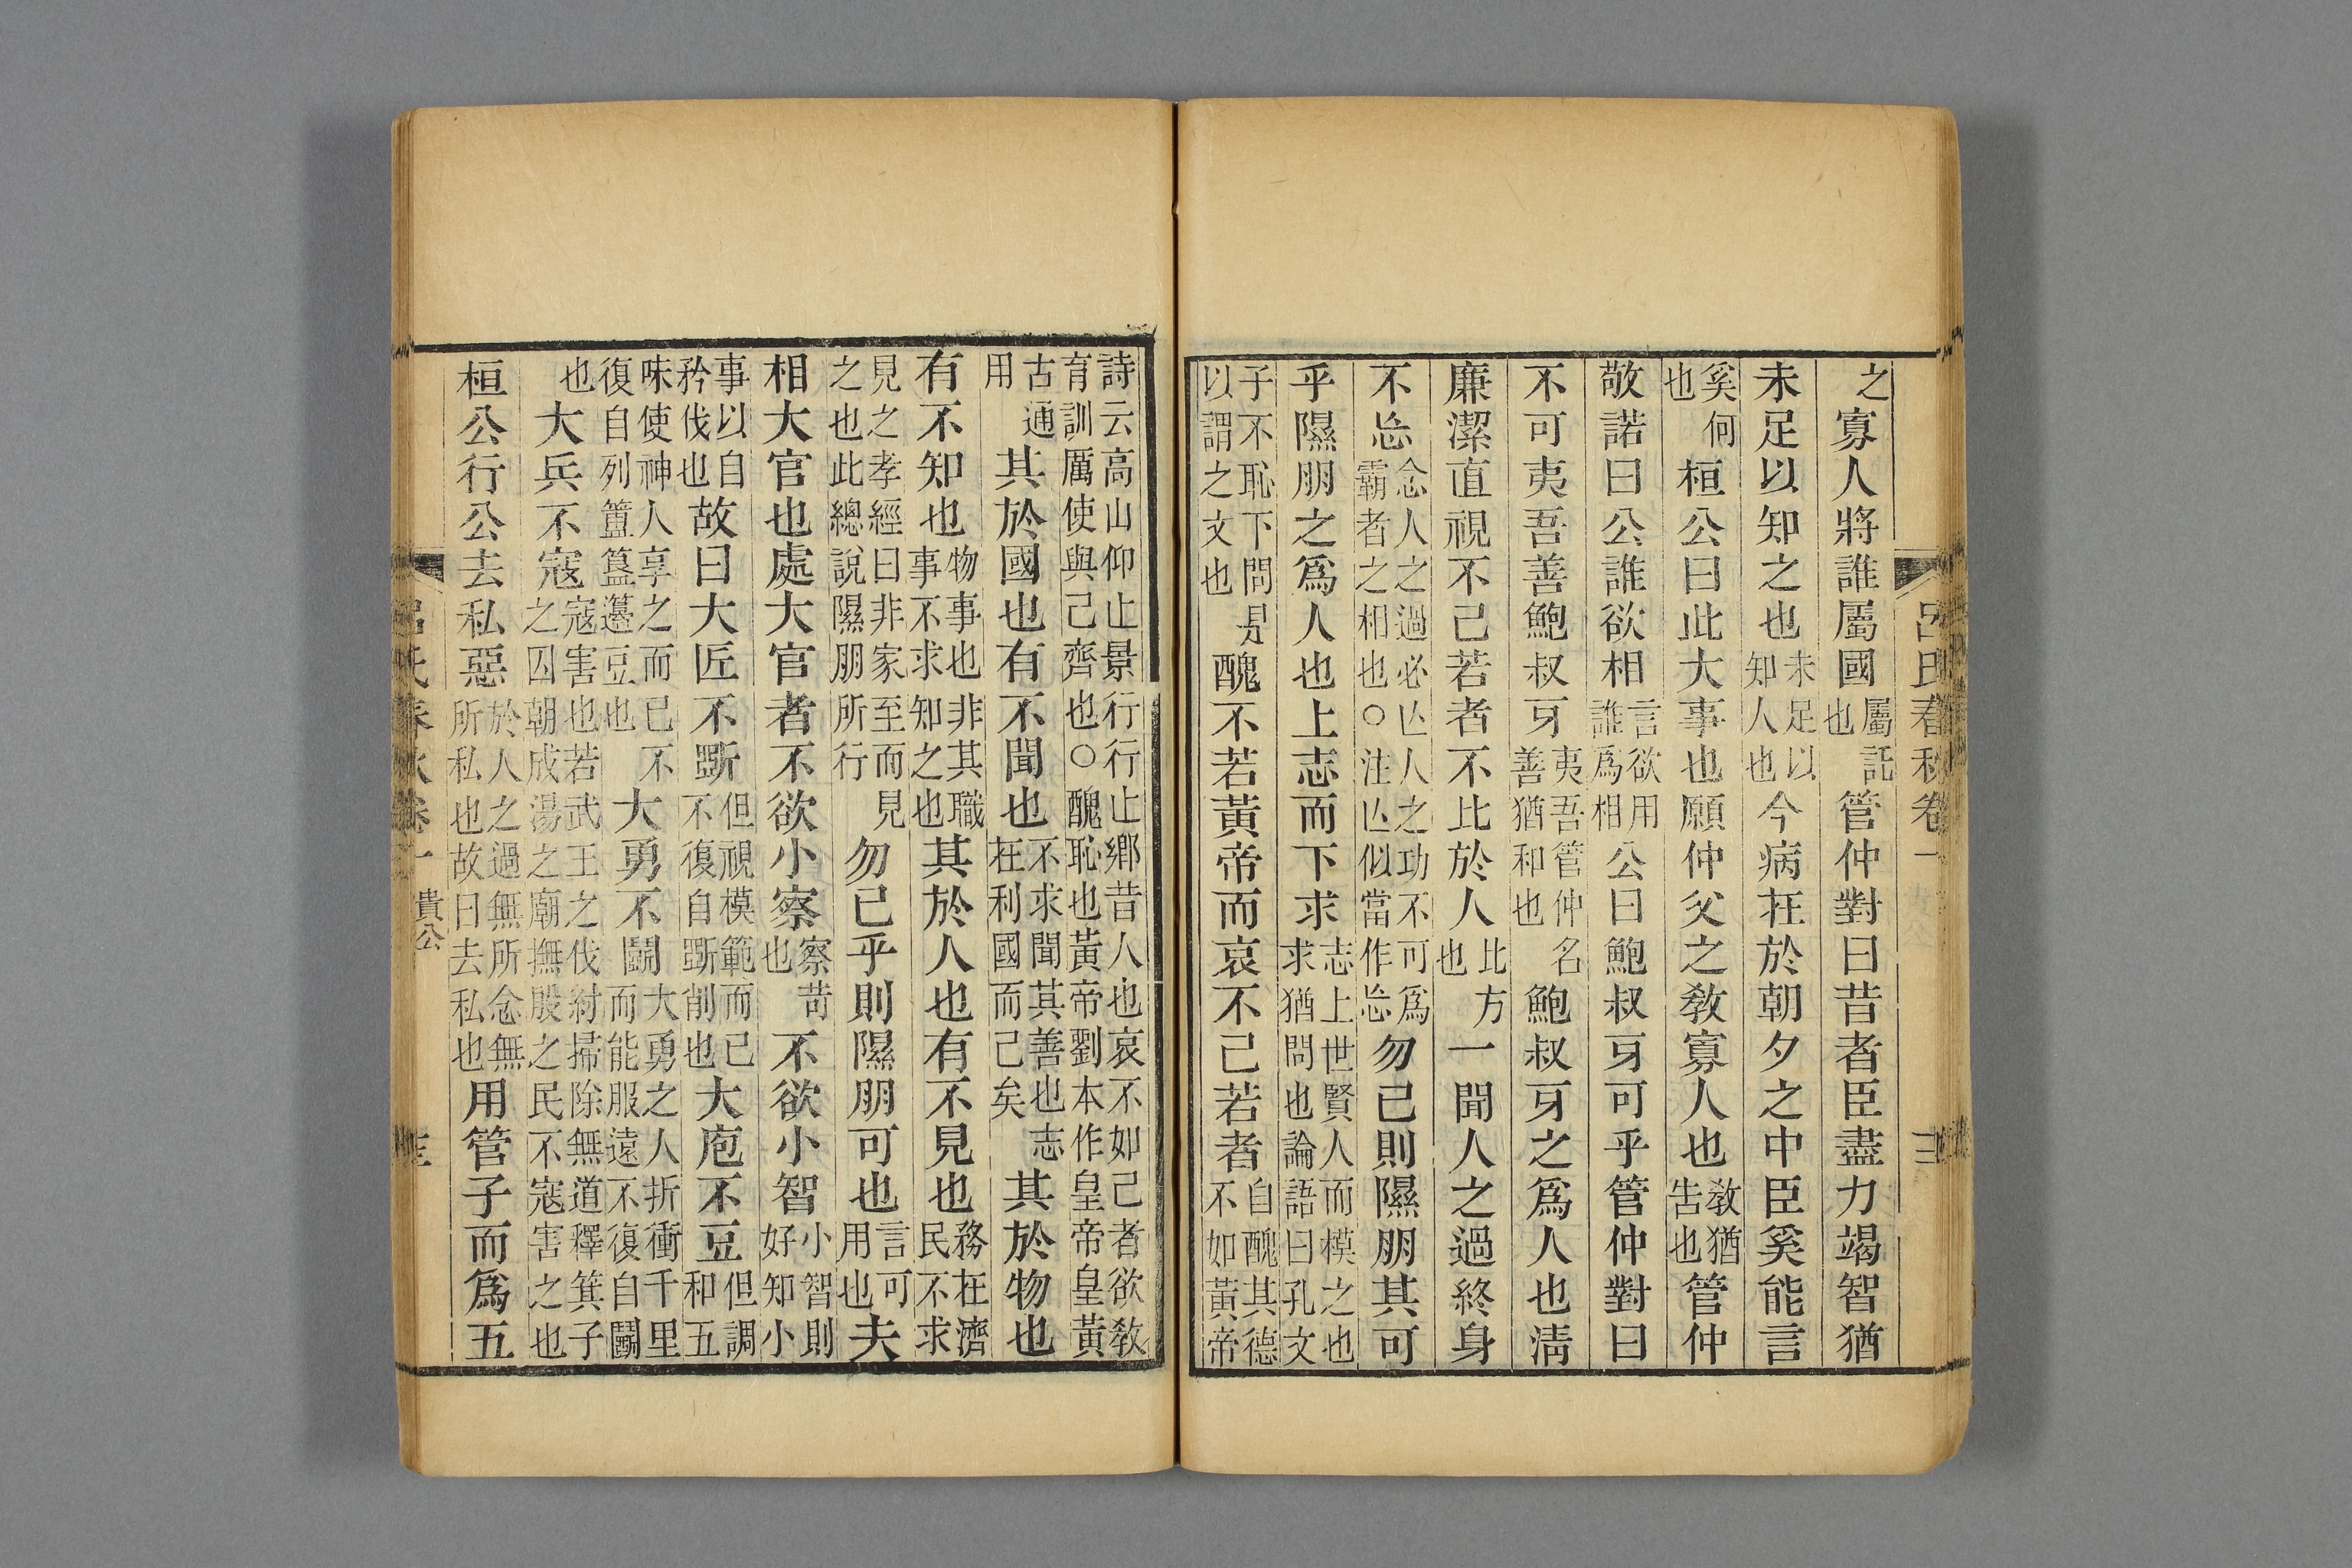 呂氏春秋卷一　三
之寡人將誰屬國屬託也管仲對曰昔者臣盡力竭智猶
未足以知之也未足以知人也今病在於朝夕之中臣奚能言
奚何也桓公曰此大事也願仲父之敎寡人也敎猶告也管仲
敬諾曰公誰欲相言欲用誰爲相公曰鮑叔牙可乎管仲對曰
不可夷吾善鮑叔牙夷吾管仲名善猶和也鮑叔牙之爲人也淸
廉潔直視不己若者不比於人比方也一聞人之過終身
不忘念人之過必亾人之功不可爲霸者之相也○注亾似當作忘勿已則隰朋其可
乎隰朋之爲人也上志而下求志上世賢人而模之也求猶問也論語曰孔文
子不恥下問是以謂之文也醜不若黃帝而哀不己若者自醜其德不如黃帝
詩云高山仰止景行行止鄉昔人也哀不如己者欲敎育訓厲使與己齊也○醜恥也黃帝劉本作皇帝皇黃
古通用其於國也有不聞也不求聞其善也志在利國而已矣其於物也
有不知也物事也非其職事不求知之也其於人也有不見也務在濟民不求
見之孝經曰非家至而見之也此總說隰朋所行勿已乎則隰朋可也言可用也夫
相大官也處大官者不欲小察察苛也不欲小智小智則好知小
事以自矜伐也故曰大匠不斲但視模範而已不復自斲削也大庖不豆但調和五
味使神人享之而已不復自列簠簋籩豆也大勇不鬭大勇之人折衝千里而能服遠不復自鬭
也大兵不寇寇害也若武王之伐紂掃除無道釋箕子之囚朝成湯之廟撫殷之民不寇害之也
桓公行公去私惡於人之過無所念無所私也故曰去私也用管子而爲五
呂氏春秋卷一　貴公